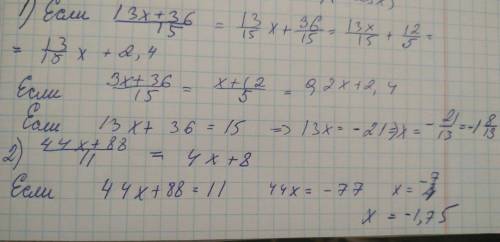 1) Если (13x+36)/15 = 13/15 x + 36/15 = 13x/15 + 12/5 =
= 13/15 x + 2,4
Если (3x+36)/15 = (x+12)/5 = 0,2x+2,4
Если 13x + 36 = 15 => 13x = -21 => x = -21/13 = -1 8/13
2) (44x+88)/11 = 4x+8
Если 44x+88 = 11 44x = -77 x = -7/4
x = -1,75